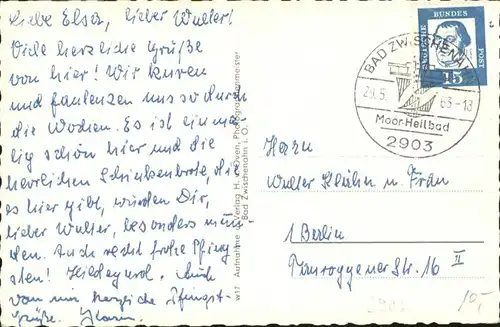 Liebe Elsa, lieber Walter!
Viele herzliche Grüße
von hier! Wir kuren
und faulenzen uns so durch
die Wochen. Es ist einma-
lig schön hier und die
herrlichen Schinkenbrote, die
es hier gibt, würden Dir,
lieber Walter, besonders mun-
den. Auch recht frohe Pfing-
sten! Hildegard. Auch
von mir herzliche Pfingst-
grüße.
w17 Aufnahme Verlag H. Photographenmeister
Bad Zwischenahn i. O.
DEUTSCHE BUNDES POST
15
BAD ZWISCHENAHN
29.5. 63-18
Moor-Heilbad
2903
Herrn
Walter u. Frau
1 Berlin
Tauroggener Str. 16 II
10,-